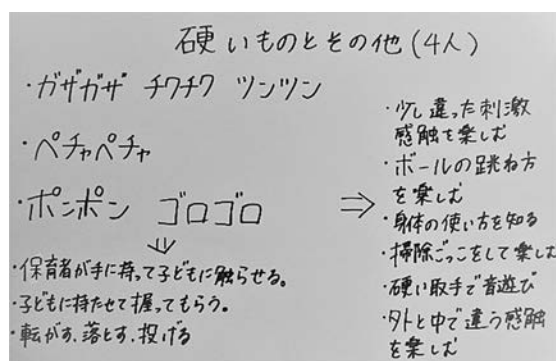 硬いものとその他(4人)
・ガザガザ チワチワ ツンツン
・ペチャペチャ
・ポンポン ゴロゴロ
⇓
・保育者が手に持って子どもに触らせる。
・子どもに持たせて握ってもらう。
・転がす、落とす、投げる
⇒
・少し違った刺激
感触を楽しむ
・ボールの跳ね方
を楽しむ
・身体の使い方を知る
・掃除ごっこをして楽しむ
・硬い取手で音遊び
・外と中で違う感触
を楽しむ